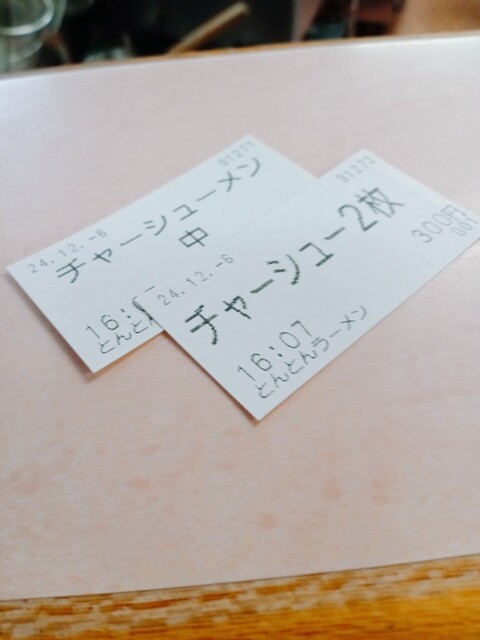 91271
24.12.-6
チャーシューメン
中
16:
とんとん
91272
24.12.-6
チャーシュー2枚
300円
001
16:07
とんとんラーメン